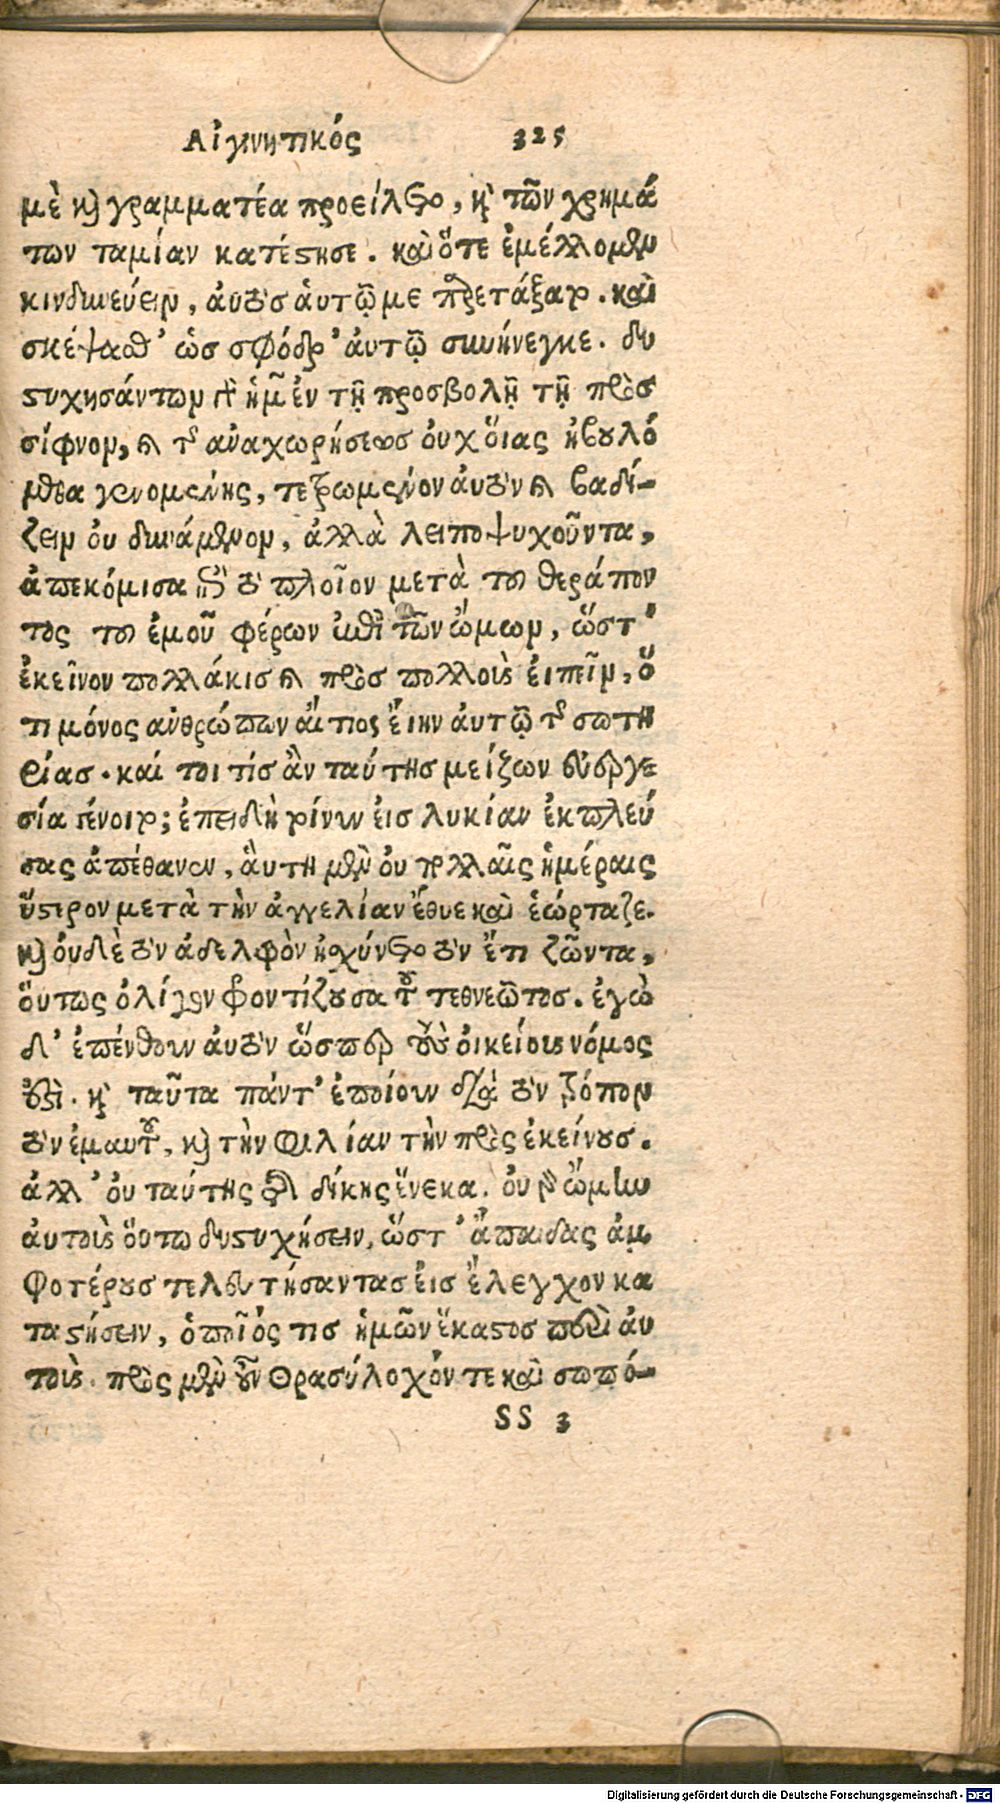 Αἰγινητικός 325
μὲ καὶ γραμματέα προείλετο, καὶ τῶν χρημά
των ταμίαν κατέστησε. καὶ ὅτε ἐμέλλομεν
κινδυνεύειν, αὐτὸσ ἁυτῷ με παρετάξατο. καὶ
σκέψασθ’ ὡσ σφόδρ’ ἀυτῷ συνήνεγκε. δυ
στυχησάντων γὰρ ἡμῶν ἐν τῇ προσβολῇ τῇ πρὸσ
σίφνον, καὶ τῆσ ἀναχωρήσεωσ ὀυχ ὅιας ἠβουλό
μεθα γενομένης, τετρωμένον ἀυτὸν καὶ βαδί-
ζειν ὀυ δυνάμενον, ἀλλὰ λειποψυχοῦντα,
ἀπεκόμισα ἐπὶ τὸ πλοῖον μετὰ τοῦ θεράπον
τος τοῦ ἐμοῦ φέρων ἐπὶ τῶν ὤμων, ὥστ’
ἐκεῖνον πολλάκισ καὶ πρὸσ πολλοὺς ἐιπεῖν, ὅ
τι μόνος ἀνθρώπων ἄιτιος ἔιην ἀυτῷ τῆσ σωτη
ρίασ. καί τοι τίσ ἂν ταύτησ μείζων ἐυεργε
σία γένοιτο; ἐπειδὴ τοίνυν ἐισ λυκίαν ἐκπλεύ
σας ἀπέθανεν, ἅυτη μὲν ὀυ πολλαῖς ἡμέραις
ὕστερον μετὰ τὴν ἀγγελίαν ἔθυε καὶ ἑώρταζε.
καὶ ὀυδὲ τὸν ἀδελφὸν ᾐσχύνετο τὸν ἔτι ζῶντα,
ὅυτως ὀλίγον φροντίζουσα τοῦ τεθνεῶτος. ἐγὼ
δ’ ἐπένθουν ἀυτὸν ὥσπερ τοὺσ ὀικείους νόμος
ἐστὶ. καὶ ταῦτα πάντ’ ἐποίουν διὰ τὸν τρόπον
τὸν ἐμαυτοῦ, καὶ τὴν φιλίαν τὴν πρὸς ἐκείνουσ.
ἀλλ’ ὀυ ταύτης τῆσ δίκης ἕνεκα. ὀυ γὰρ ὤμην
ἀυτοὺς ὅυτω δυστυχήσειν, ὥστ’ ἄπαιδας ἀμ
φοτέρουσ τελευτήσαντασ ἐισ ἔλεγχον κα
ταστήσειν, ὁποῖός τισ ἡμῶν ἕκαστοσ περὶ ἀυ
τοὺς. πρὸς μὲν οὖν Θρασύλοχόν τε καὶ σωπό-
SS 3
Digitalisierung gefördert durch die Deutsche Forschungsgemeinschaft - DFG